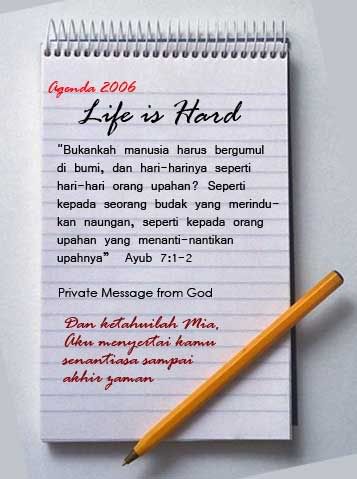 Agenda 2006
Life is Hard
"Bukankah manusia harus bergumul
di bumi, dan hari-harinya seperti
hari-hari orang upahan? Seperti
kepada seorang budak yang merindu-
kan naungan, seperti kepada orang
upahan yang menanti-nantikan
upahnya" Ayub 7:1-2
Private Message from God
Dan ketahuilah Mia,
Aku menyertai kamu
senantiasa sampai
akhir zaman